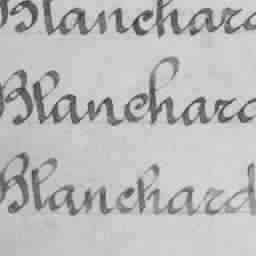 Blanchard
Blanchard
Blanchard